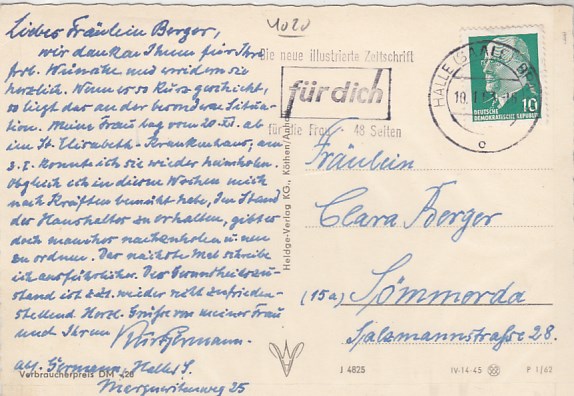 1020
Liebes Fräulein Berger,
wir danken Ihnen für Ihre
frdl. Wünsche und erwidern sie
herzlich. Wenn es so kurz geschieht,
so liegt das an der besonderen Situa-
tion. Meine Frau lag vom 20. XI. ab
im St. Elisabeth-Krankenhaus, am
konnte ich sie wieder heimholen.
Obgleich ich in diesen Wochen mich
nach Kräften bemüht habe, den Stand
des Haushaltes zu erhalten, gibt es
doch manches nachzuholen u. neu
zu ordnen. Das nächste Mal schreibe
ich ausführlicher. Der Gesundheitszu-
stand ist z. Zt. wieder nicht zufrieden-
stellend. Herzl. Grüße von meiner Frau
und Ihrem
abs. Germann, Halle/S.
25
Verbraucherpreis DM -,20
Heldge-Verlag KG., Köthen/Anhalt
Die neue illustrierte Zeitschrift
für dich
für die Frau 48 Seiten
HALLE (SAALE)
19
c
10
DEUTSCHE
DEMOKRATISCHE REPUBLIK
Fräulein
Clara Berger
(15a) Sömmerda
Salzmannstraße 28.
J 4825
IV-14-45
P 1/62